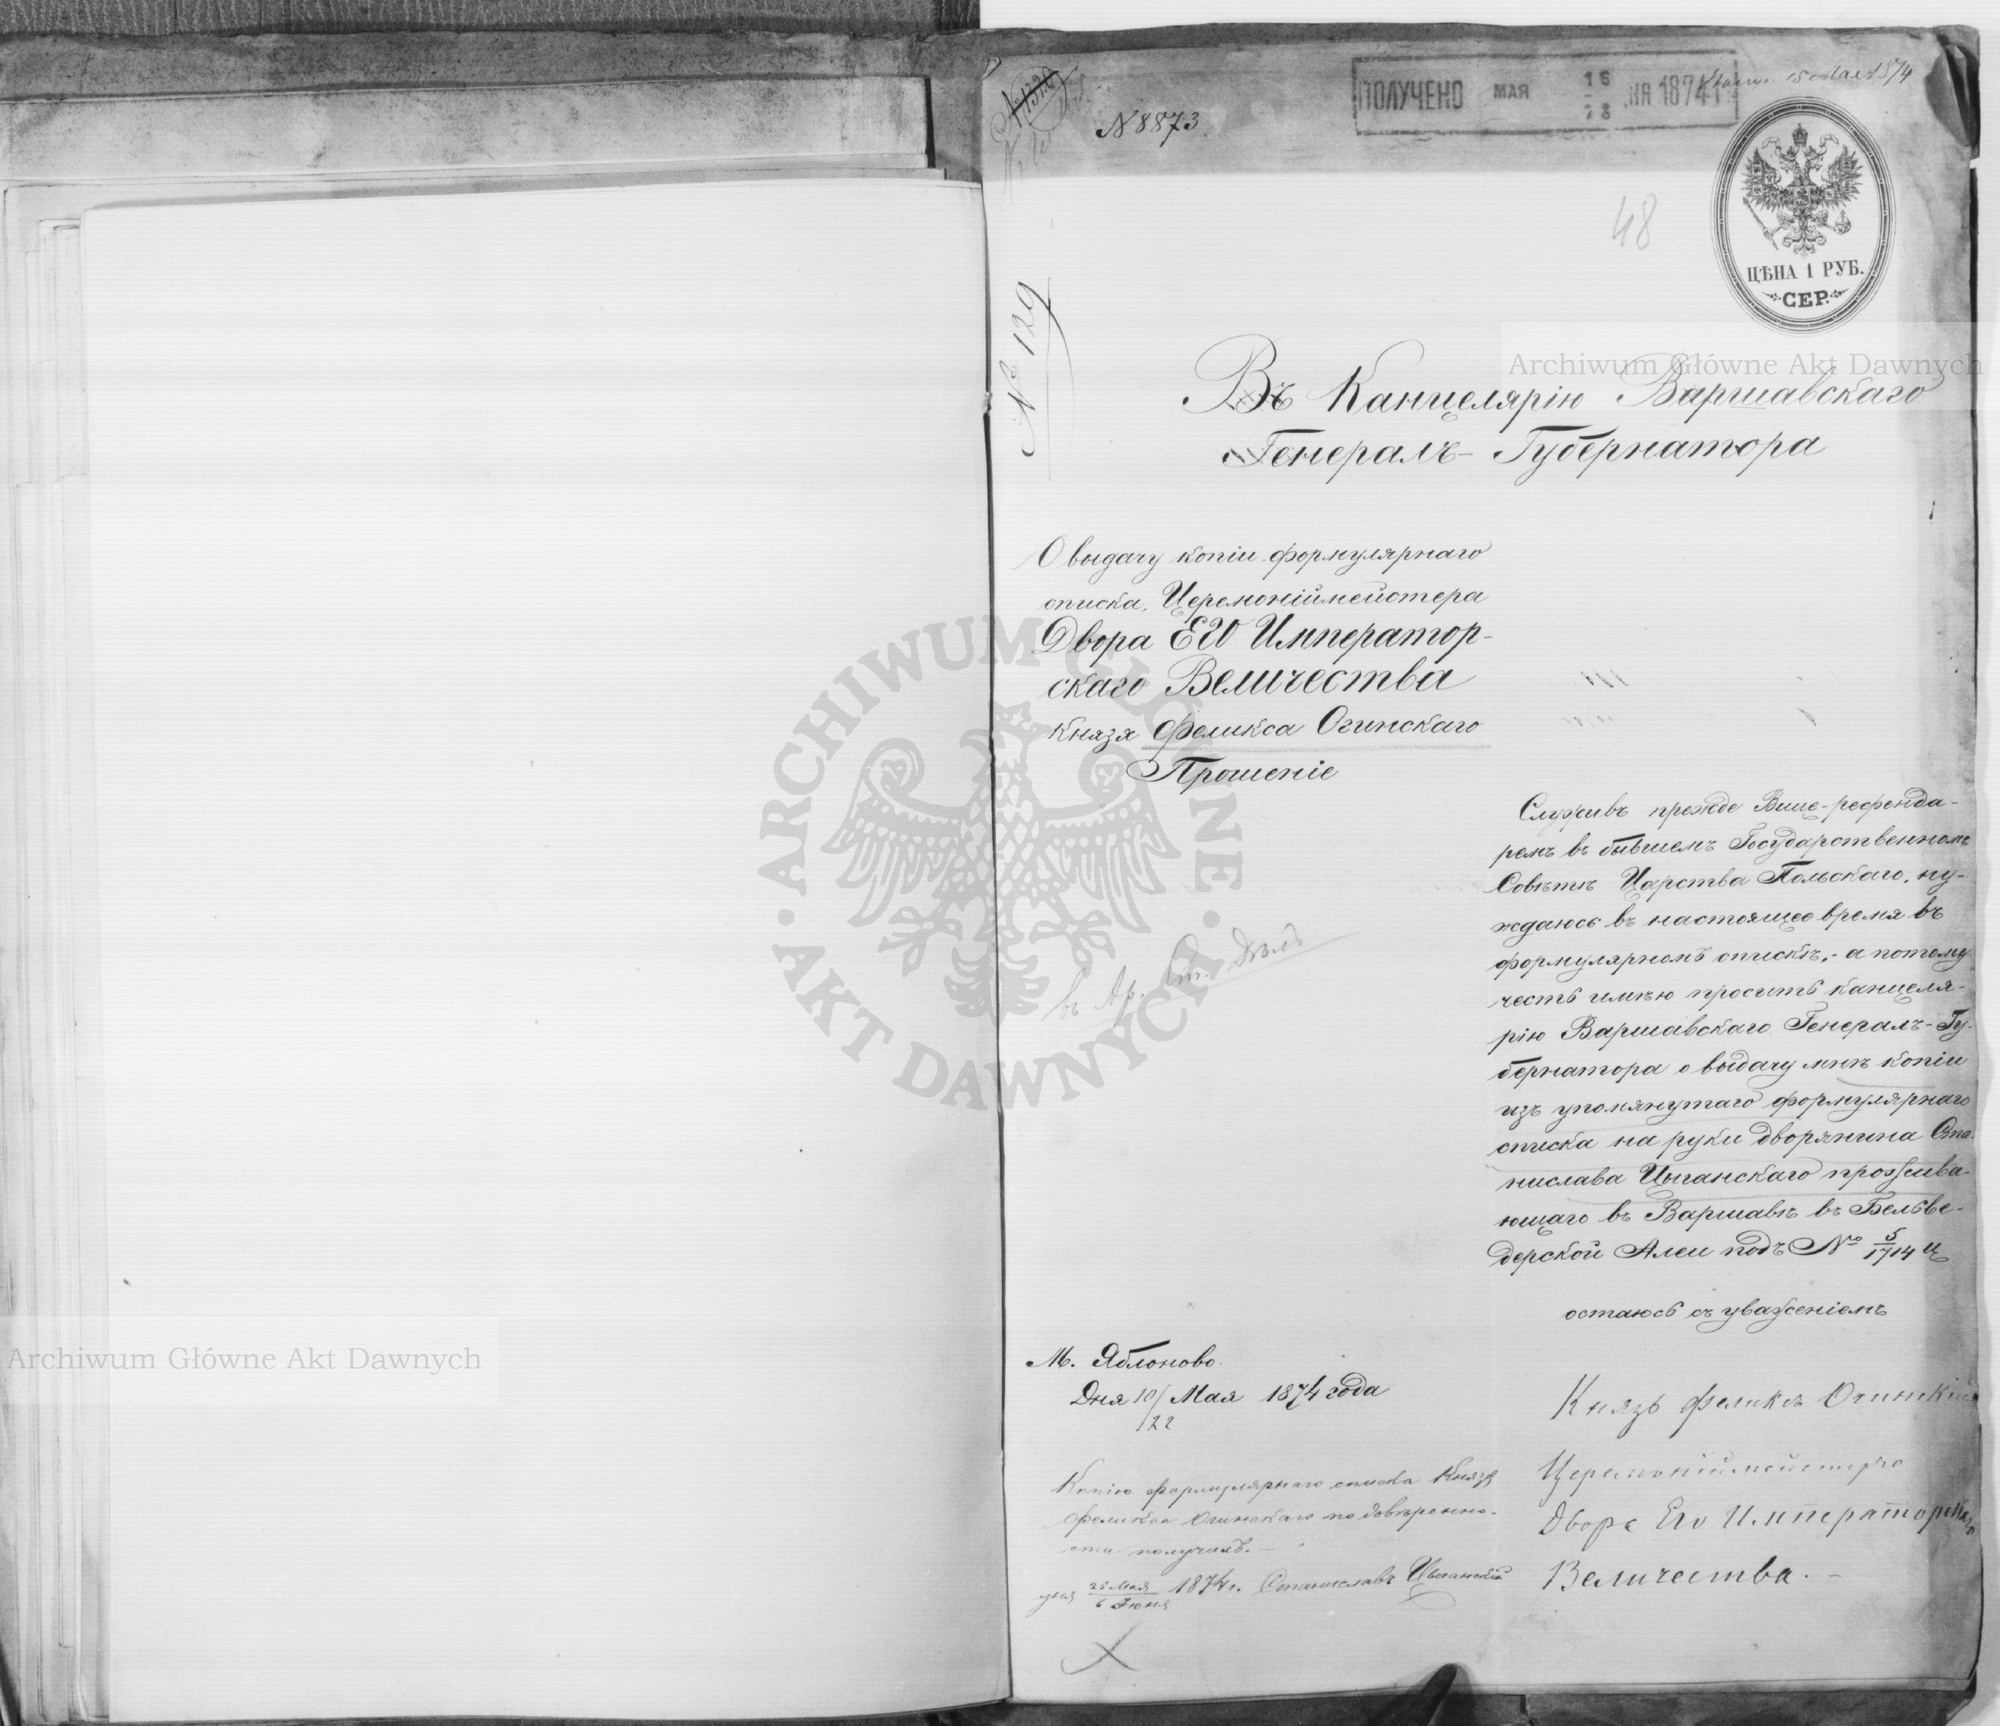 № 1320
№ 8873
ПОЛУЧЕНО МАЯ 16 28 ДНЯ 1874 Г.
15 Мая 1874
48
ЦѢНА 1 РУБ.
СЕР.
№ 129
Archiwum Główne Akt Dawnych
Въ Канцелярію Варшавскаго
Генералъ-Губернатора
О выдачу копіи формулярнаго
списка, Церемоніймейстера
Двора ЕГО Император-
скаго Величества
Князя Феликса Огинскаго
Прошеніе
Служивъ прежде Вице-референда-
ремъ въ бывшемъ Государственномъ
Совѣтѣ Царства Польскаго, ну-
ждаюсь въ настоящее время въ
формулярномъ спискѣ,- а потому
честь имѣю просить канцеля-
рію Варшавскаго Генералъ-Гу-
бернатора о выдачу мнѣ копіи
изъ упомянутаго формулярнаго
списка на руки дворянина Ста-
нислава Цыганскаго прожива-
ющаго въ Варшавѣ въ Бельве-
дерской Алеи подъ № 5/1714 ц
остаюсь съ уваженіемъ
въ Ар. Ст. Дѣлъ
М. Яблоново.
Дня 10/22 Мая 1874 года
Князь Феликсъ Огинскій
Церемоніймейстеръ
Двора Его Императорскаго
Величества. -
Копію формулярнаго списка Князя
Феликса Огинскаго по довѣренно-
сти получилъ. -
дня 25 Мая / 6 Іюня 1874 г. Станиславъ Цыганскій
ARCHIWUM GŁÓWNE AKT DAWNYCH
Archiwum Główne Akt Dawnych